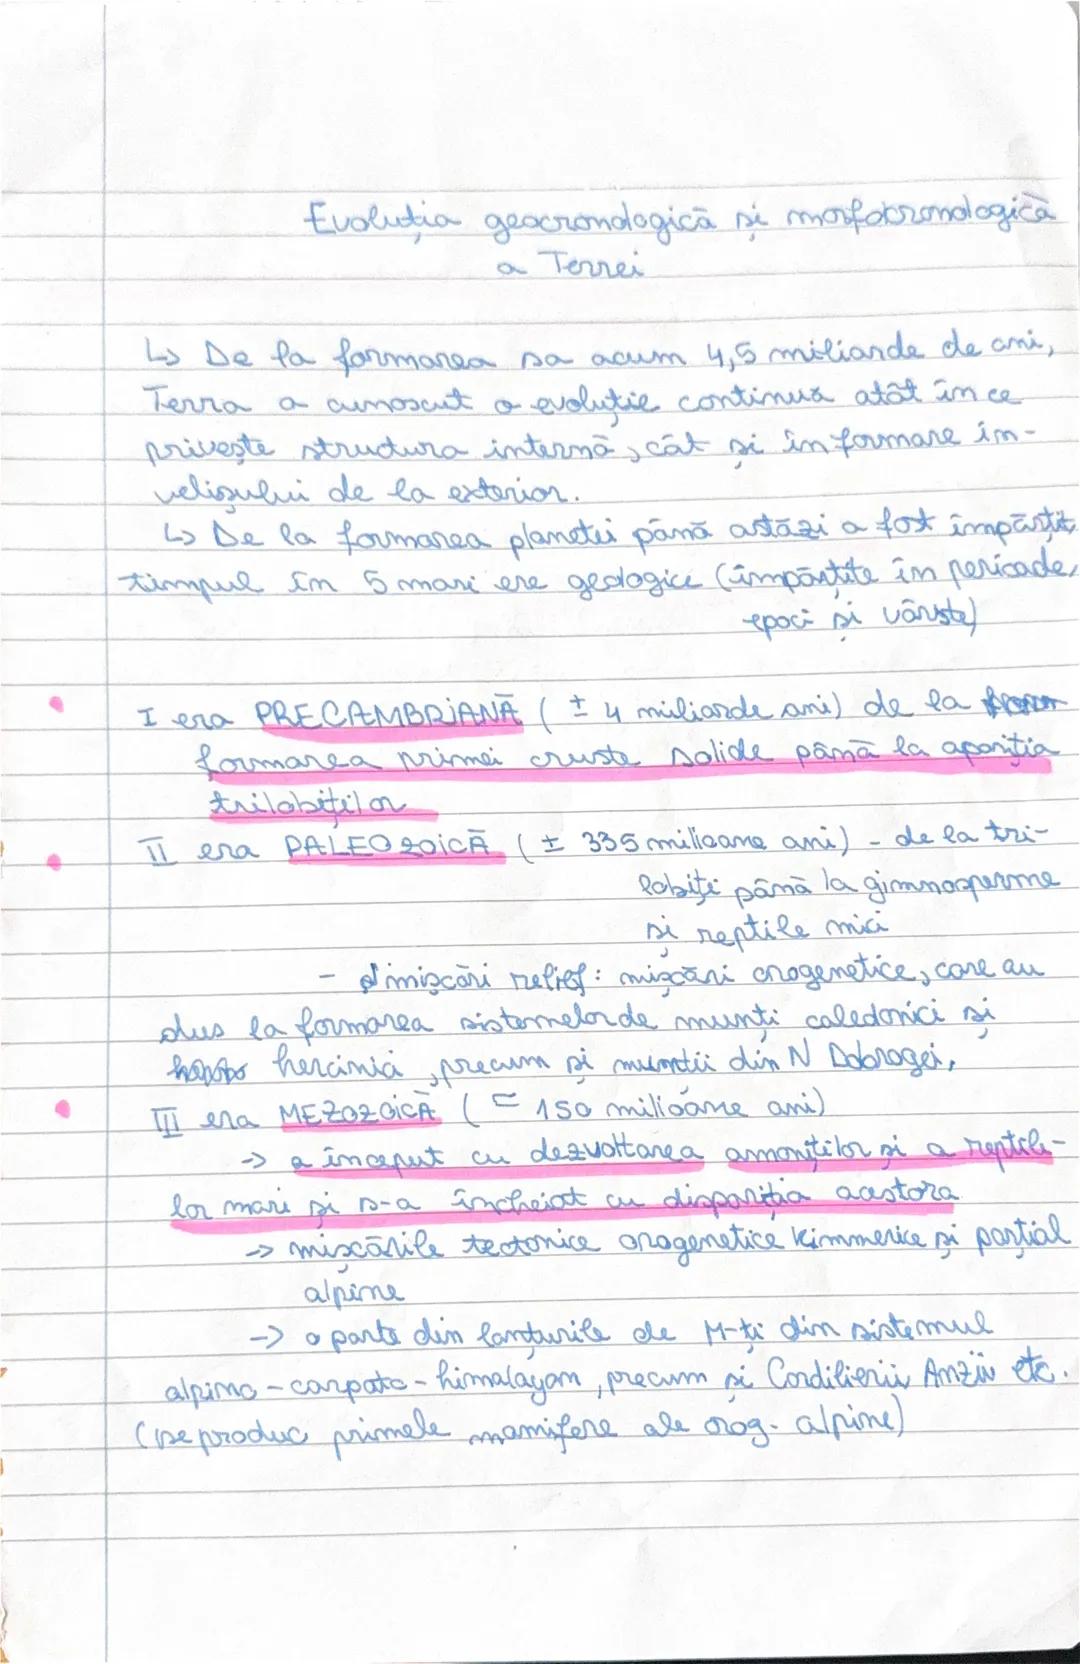 Evoluția geocronologică și morfocronologică
a Terrei
↳ De la formarea sa acum 4,5 miliarde de ani,
Terra a cunoscut o evoluție continuă atât în ce
privește structura internă, cât și în formare în-
velișului de la exterior.
↳ De la formarea planetei până astăzi a fost împărțit
timpul în 5 mari ere geologice (împărțite în perioade,
epoci și vârste)
I era PRECAMBRIANĂ ( ± 4 miliarde ani) de la
formarea primei cruste solide până la apariția
trilobiților
II era PALEOZOICĂ ( ± 335 milioane ani) - de la tri-
lobiți până la gimnosperme
și reptile mici
- mișcări relief: mișcări orogenetice, care au
dus la formarea sistemelor de munți caledonici și
hercinici, precum și munții din N Dobrogei,
III era MEZOZOICĂ ( = 150 milioane ani)
→ a început cu dezvoltarea amoniților și a reptile-
lor mari și s-a încheiat cu dispariția acestora
→ mișcările tectonice orogenetice kimmerice și parțial
alpine
→ o parte din lanțurile de M-ți din sistemul
alpino-carpato-himalayan, precum și Cordilierii Anzii etc.
(se produc primele mamifere ale orog. alpine)